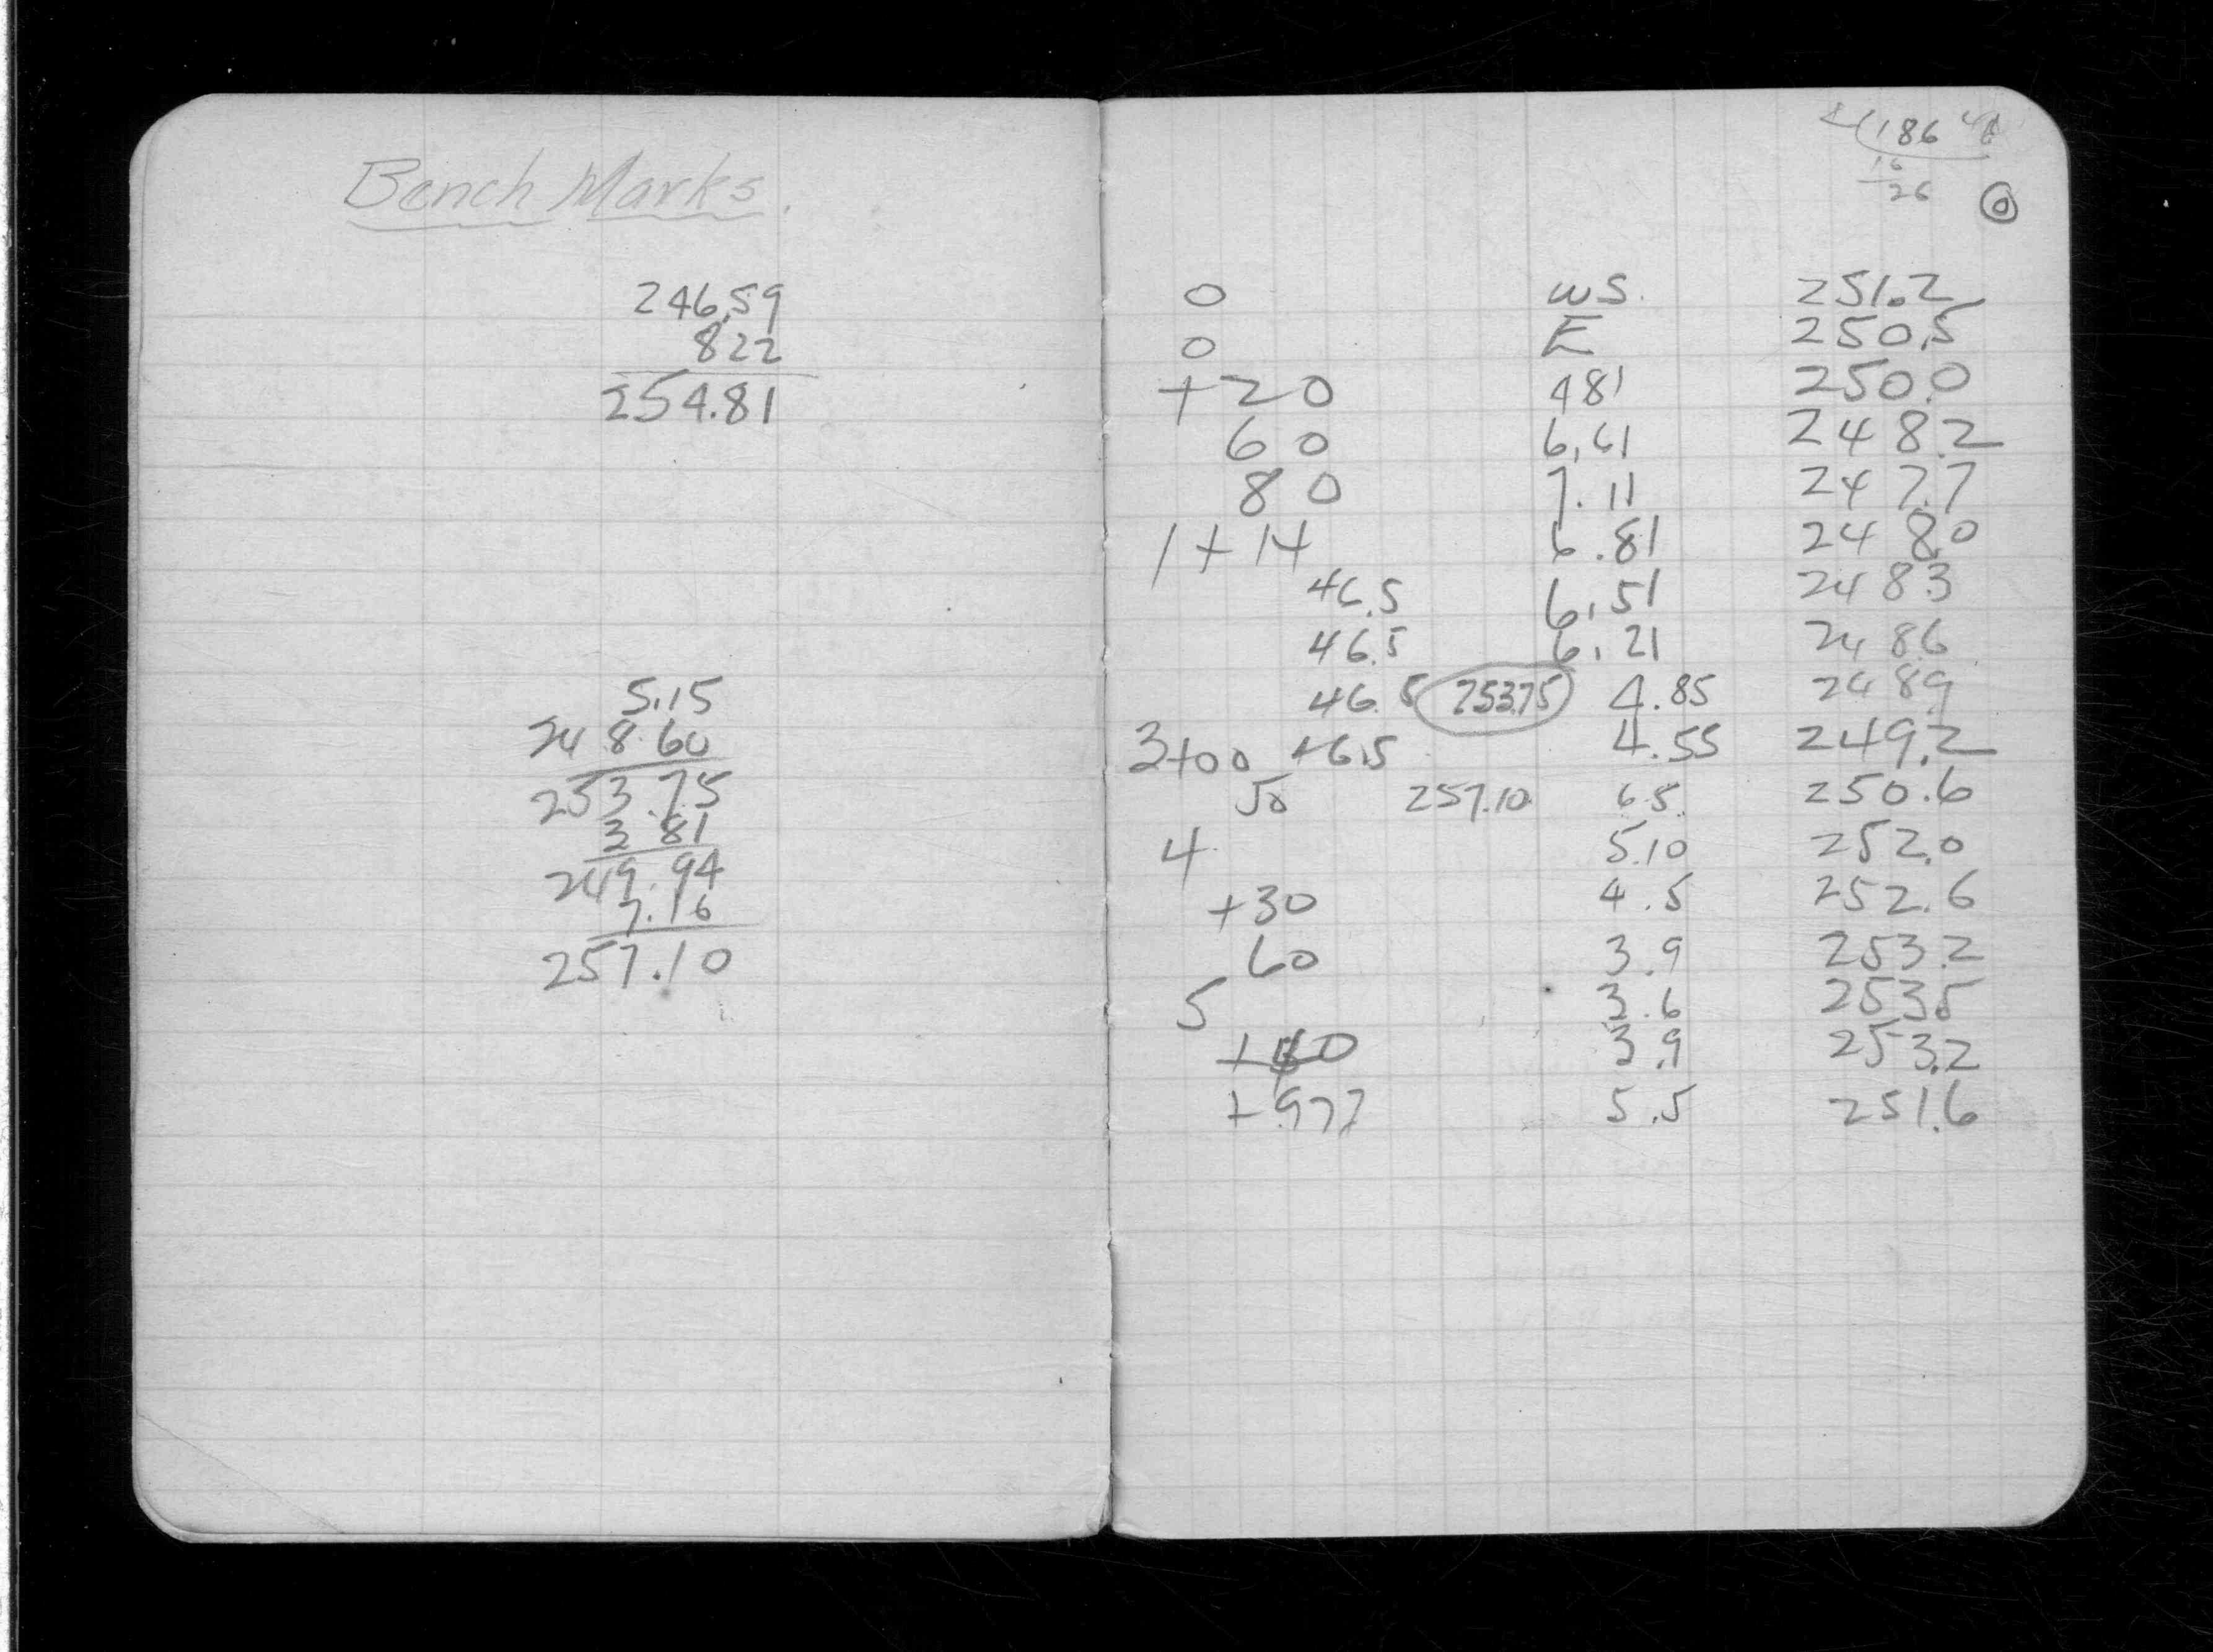 Bench Marks.
246.59
822
254.81
5.15
248.60
253.75
3 81
249.94
7.16
257.10
186
16
26
0
0 WS. 251.2
0 E 250.5
+20 481 250.0
60 6.61 248.2
80 7.11 247.7
1+14 6.81 248.0
46.5 6.51 248.3
46.5 6.21 248.6
46.5 253.75 4.85 248.9
3+00 46.5 4.55 249.2
50 257.10 6.5 250.6
4 5.10 252.0
+30 4.5 252.6
60 3.9 253.2
5 3.6 253.5
3.9 253.2
+97.7 5.5 251.6